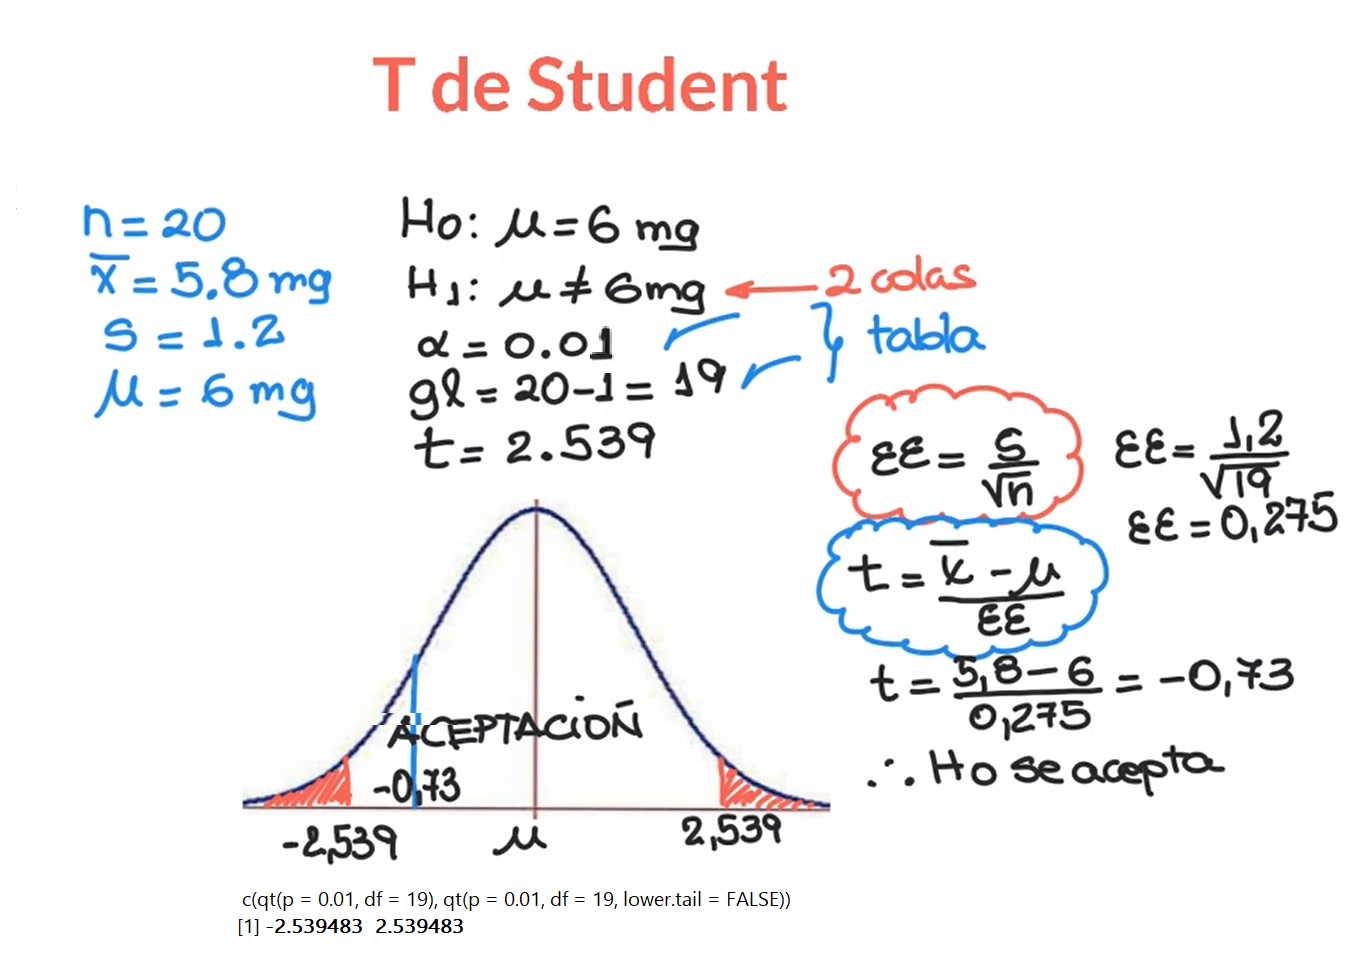 T de Student
n = 20
x̄ = 5.8 mg
s = 1.2
μ = 6 mg
Ho: μ = 6 mg
H1: μ ≠ 6mg
α = 0.01
gl = 20-1 = 19
t = 2.539
2 colas
tabla
EE = s/√n
EE = 1,2/√19
EE = 0,275
t = x̄ - μ/EE
t = 5,8 - 6/0,275 = -0,73
∴ Ho se acepta
ACEPTACIOÑ
-0,73
-2,539
μ
2,539
c(qt(p = 0.01, df = 19), qt(p = 0.01, df = 19, lower.tail = FALSE))
[1] -2.539483 2.539483